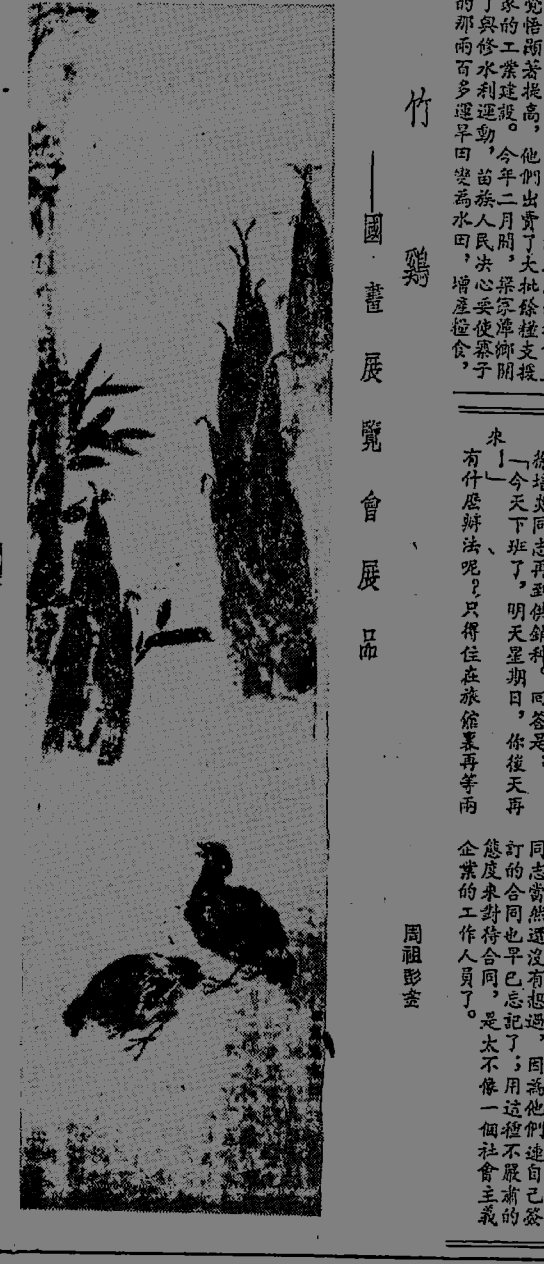 覺悟顯著提高，他們出賣了大批餘糧支援
家的工業建設。今年二月間，梁家潭鄉開
了興修水利運動，苗族人民決心要使寨子
的那兩百多運旱田變為水田，增產糧食，
同志再到供銷科。回答是：
「今天下班了，明天星期日，你後天再
來！」
有什麼辦法呢？只得住在旅館裏再等兩
同志當然還沒有想過，因為他們連自己簽
訂的合同也早已忘記了；用這種不嚴肅的
態度來對待合同，是太不像一個社會主義
企業的工作人員了。
竹鷄
——國畫展覽會展品
周祖彭